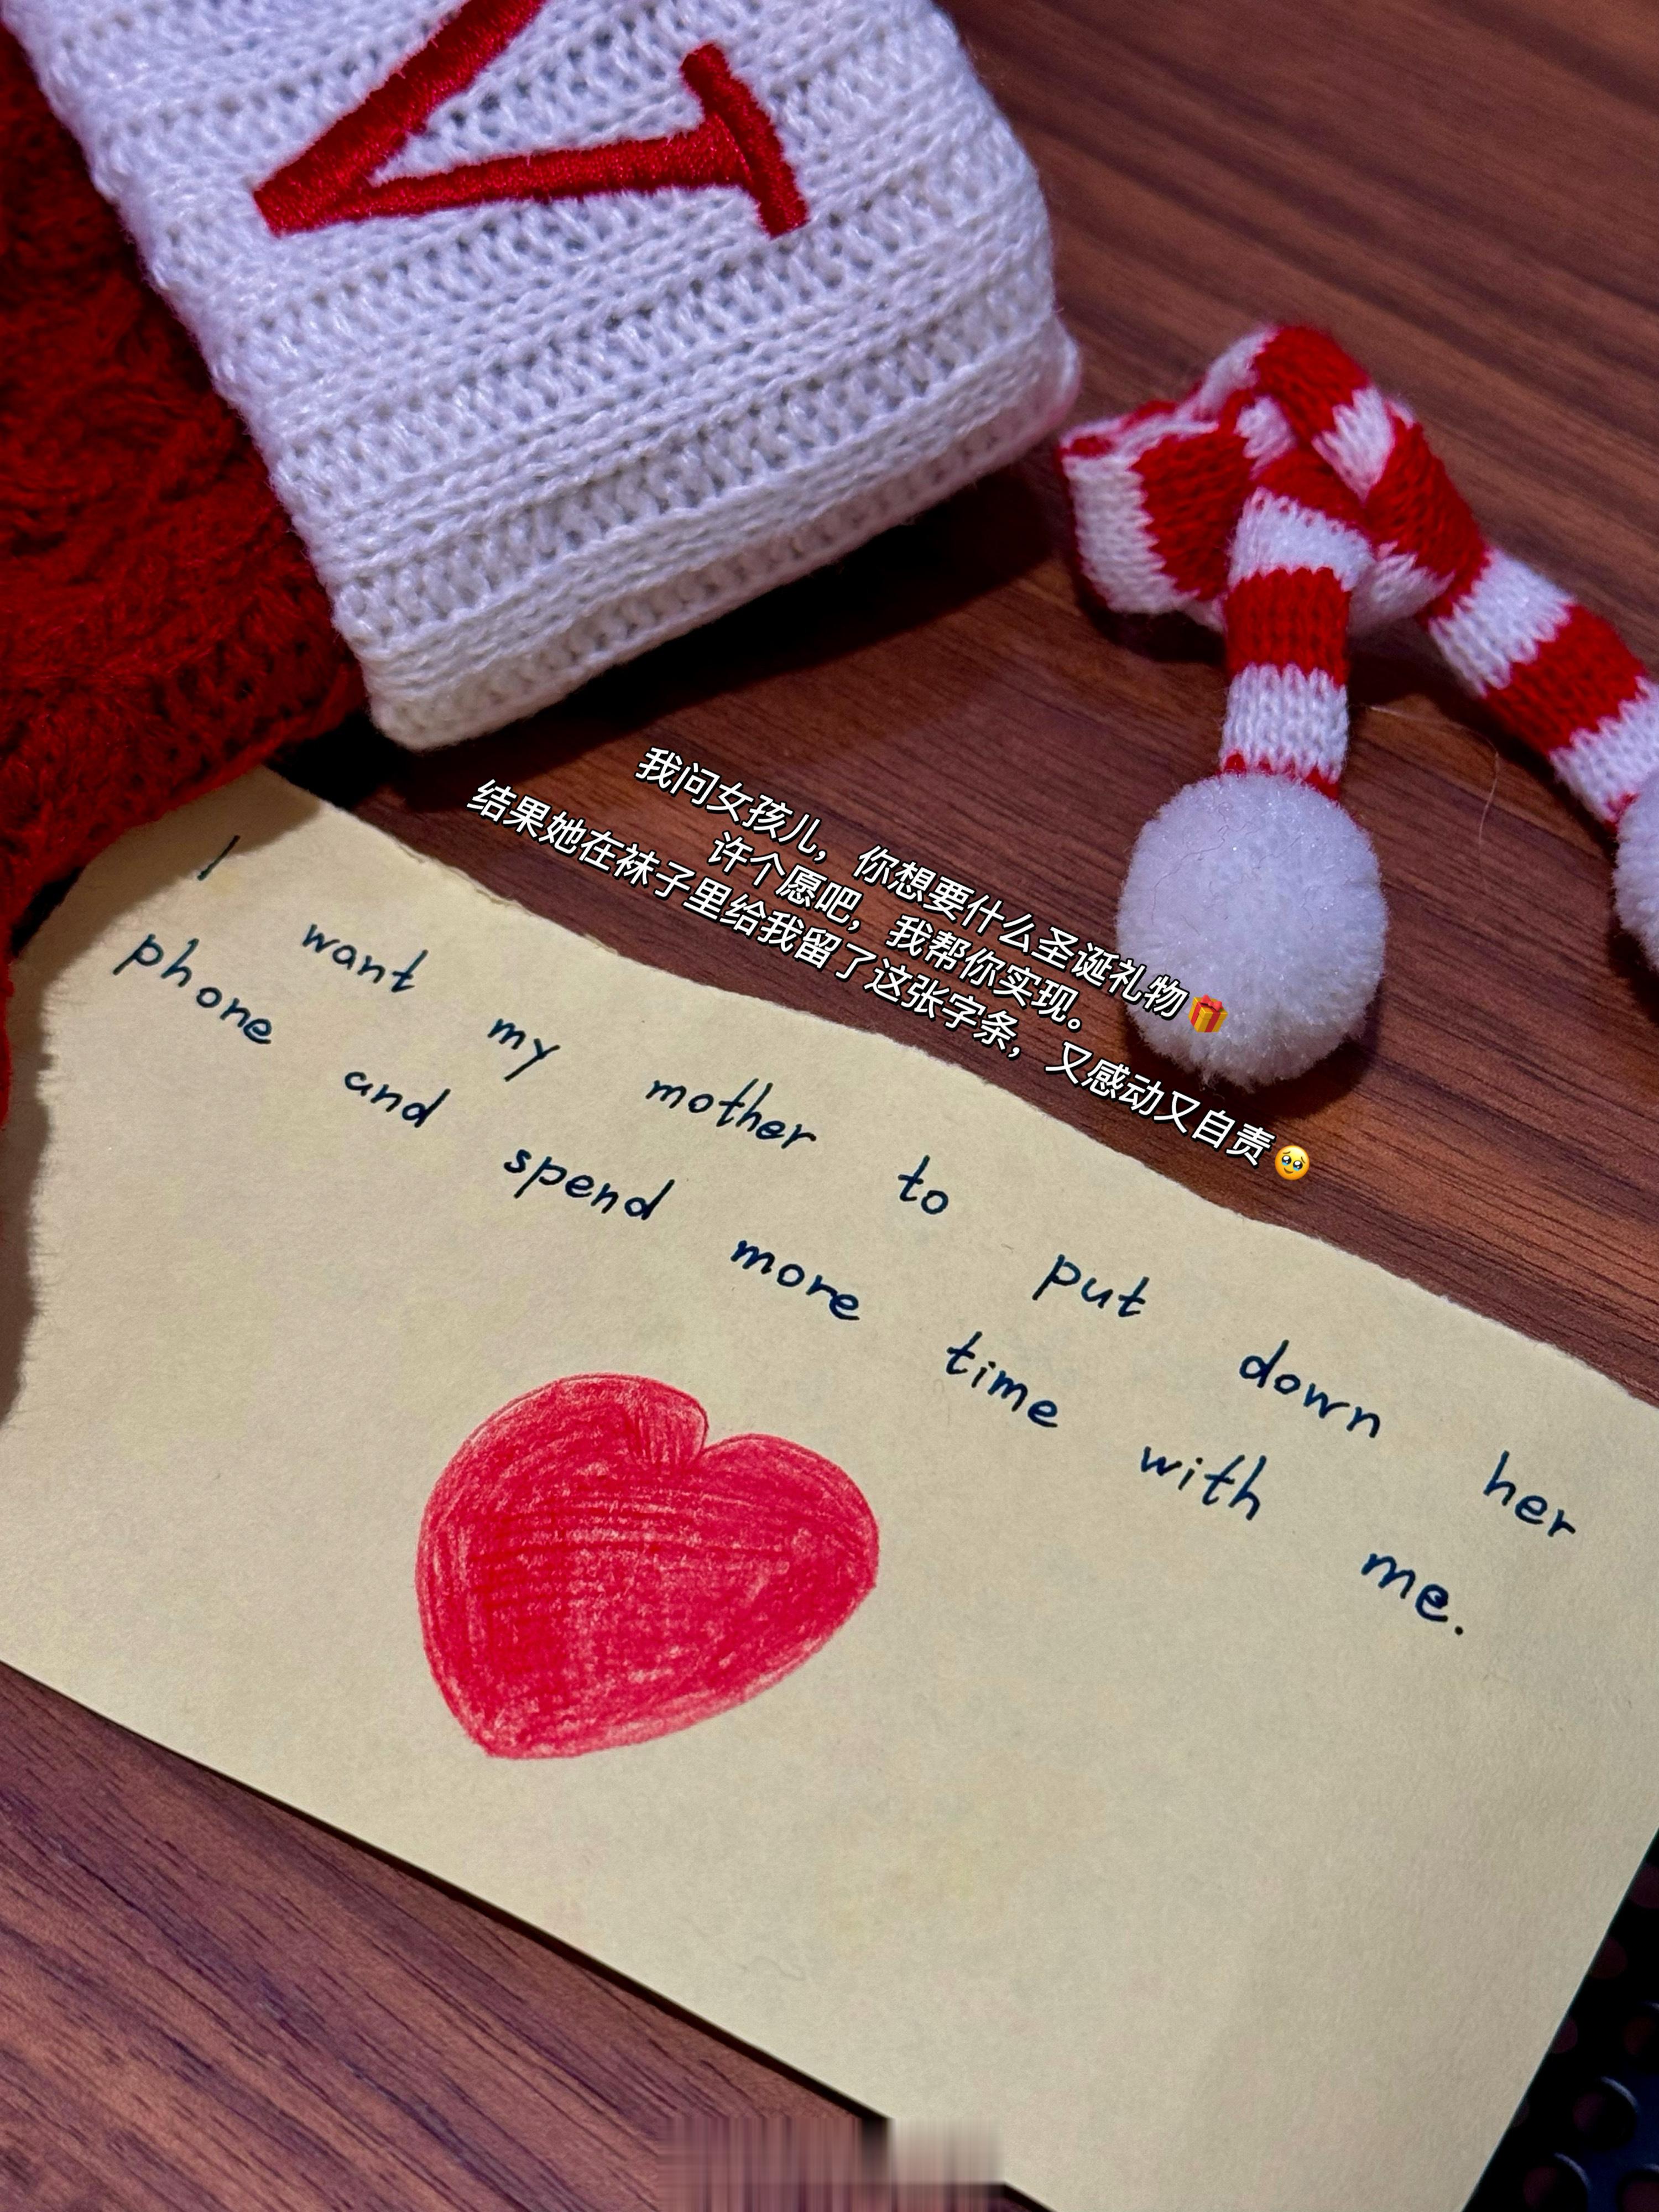 我问女孩儿，你想要什么圣诞礼物🎁
许个愿吧，我帮你实现。
结果她在袜子里给我留了这张字条，又感动又自责🥹
I want my mother to put down her
phone and spend more time with me.